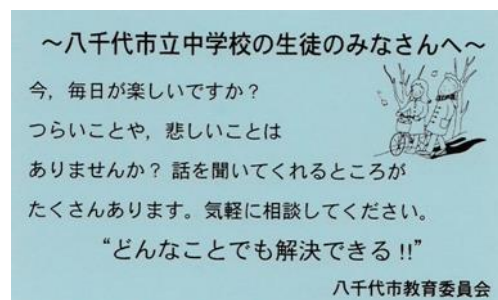 ～八千代市立中学校の生徒のみなさんへ～
今，毎日が楽しいですか？
つらいことや，悲しいことは
ありませんか？ 話を聞いてくれるところが
たくさんあります。気軽に相談してください。
“どんなことでも解決できる !!”
八千代市教育委員会